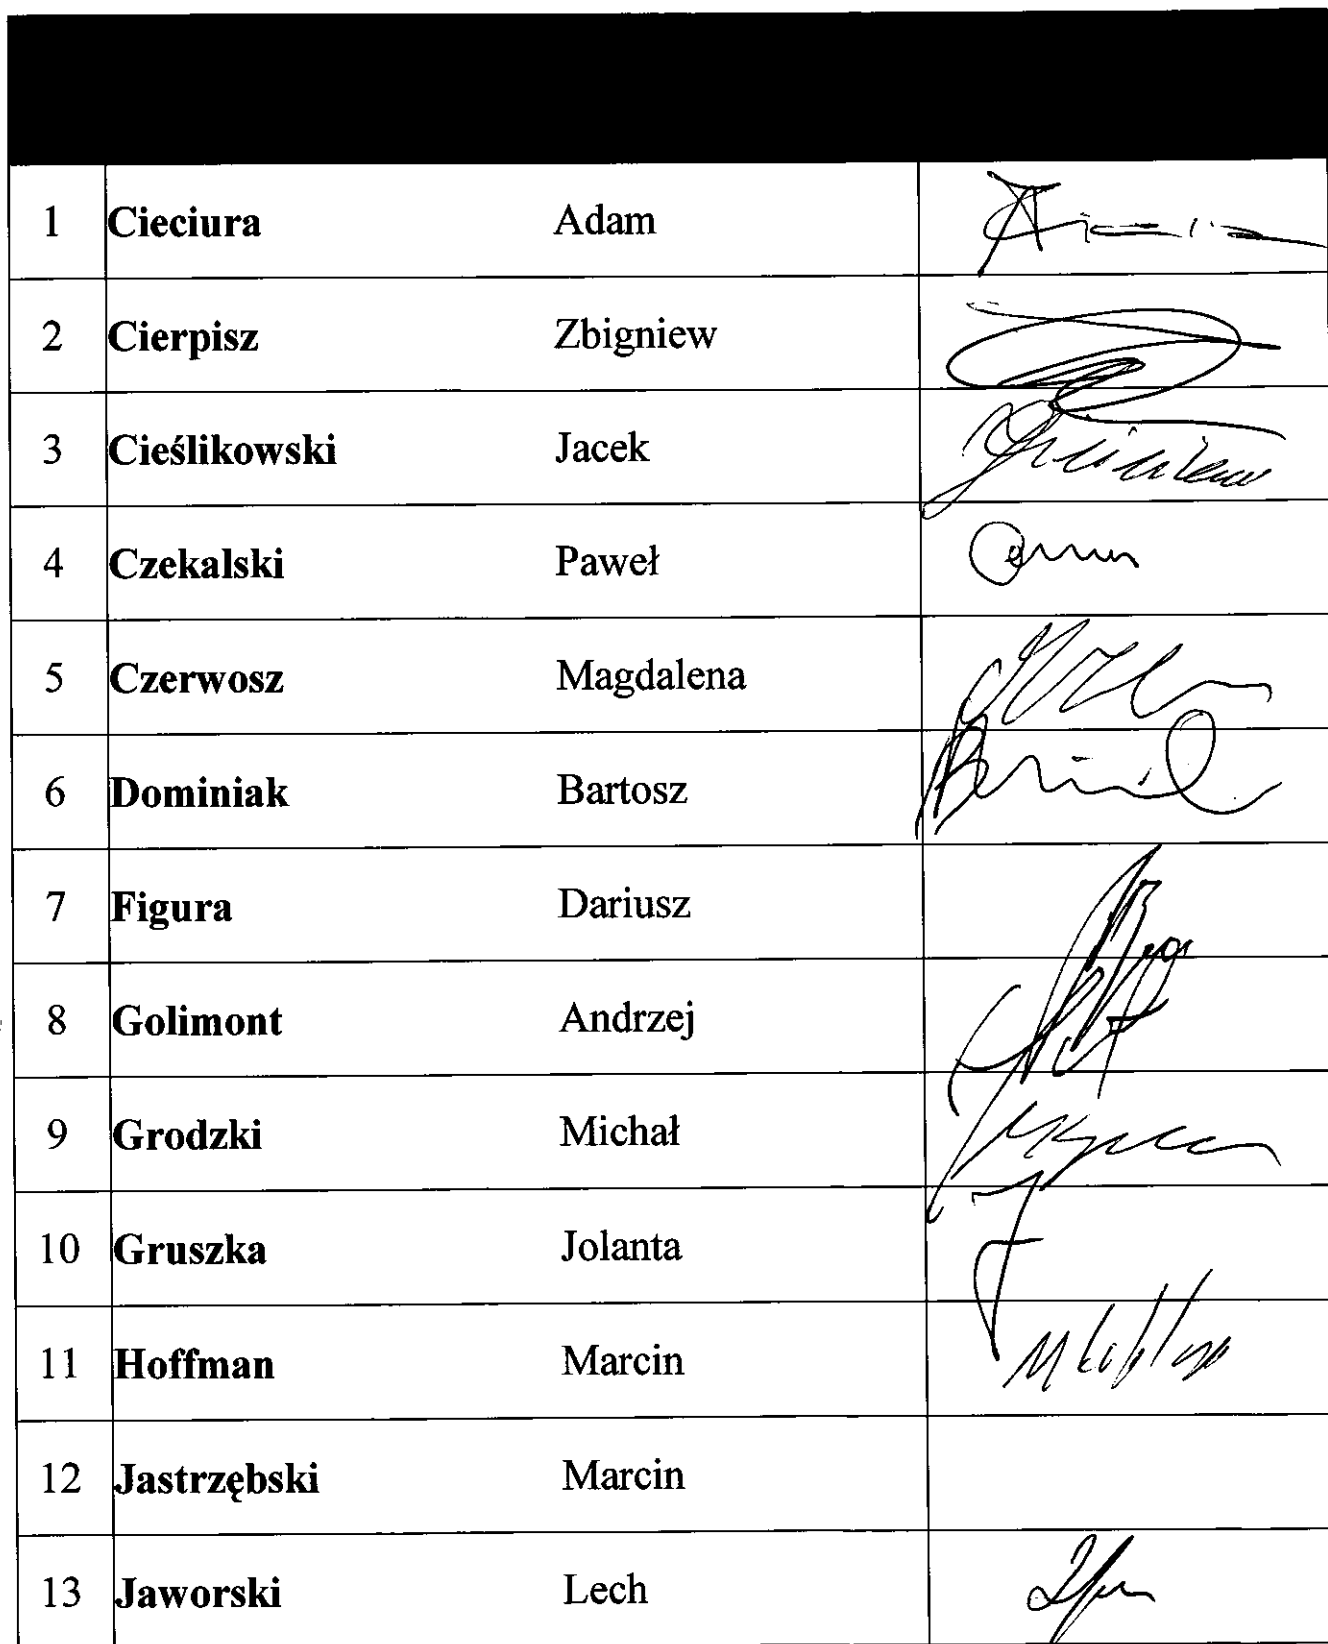 1 Cieciura Adam
2 Cierpisz Zbigniew
3 Cieślikowski Jacek
4 Czekalski Paweł
5 Czerwosz Magdalena
6 Dominiak Bartosz
7 Figura Dariusz
8 Golimont Andrzej
9 Grodzki Michał
10 Gruszka Jolanta
11 Hoffman Marcin
12 Jastrzębski Marcin
13 Jaworski Lech